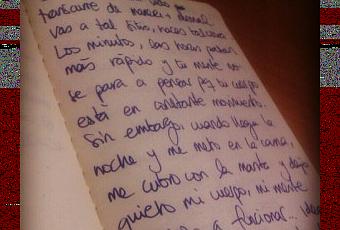 transcurre de manera normal
vas a tal sitio, haces tal cosa
Los minutos, las horas pasan
más rápido y tu mente no
se para a pensar pq tu cuerpo
está en constante movimiento.
Sin embargo, cuando llega la
noche y me meto en la cama,
me cubro con la manta y dejo
quieto mi cuerpo, mi mente
a funcionar...